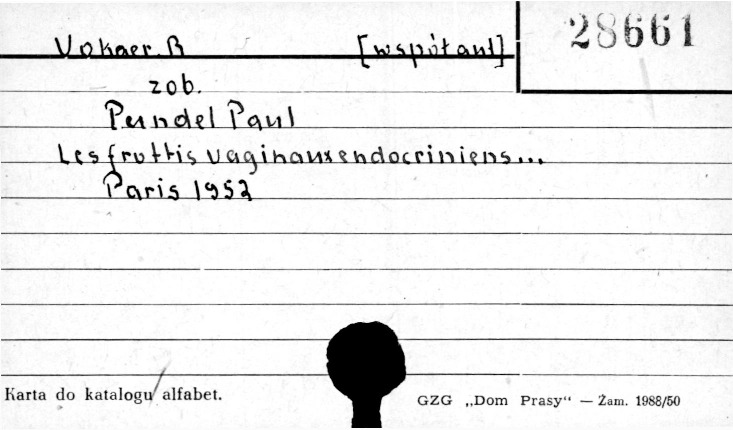 Vokaer. R [współaut] 28661
zob.
Pundel Paul
Les frottis vaginaux endocriniens...
Paris 1952
Karta do katalogu alfabet.
GZG „Dom Prasy“ — Żam. 1988/50